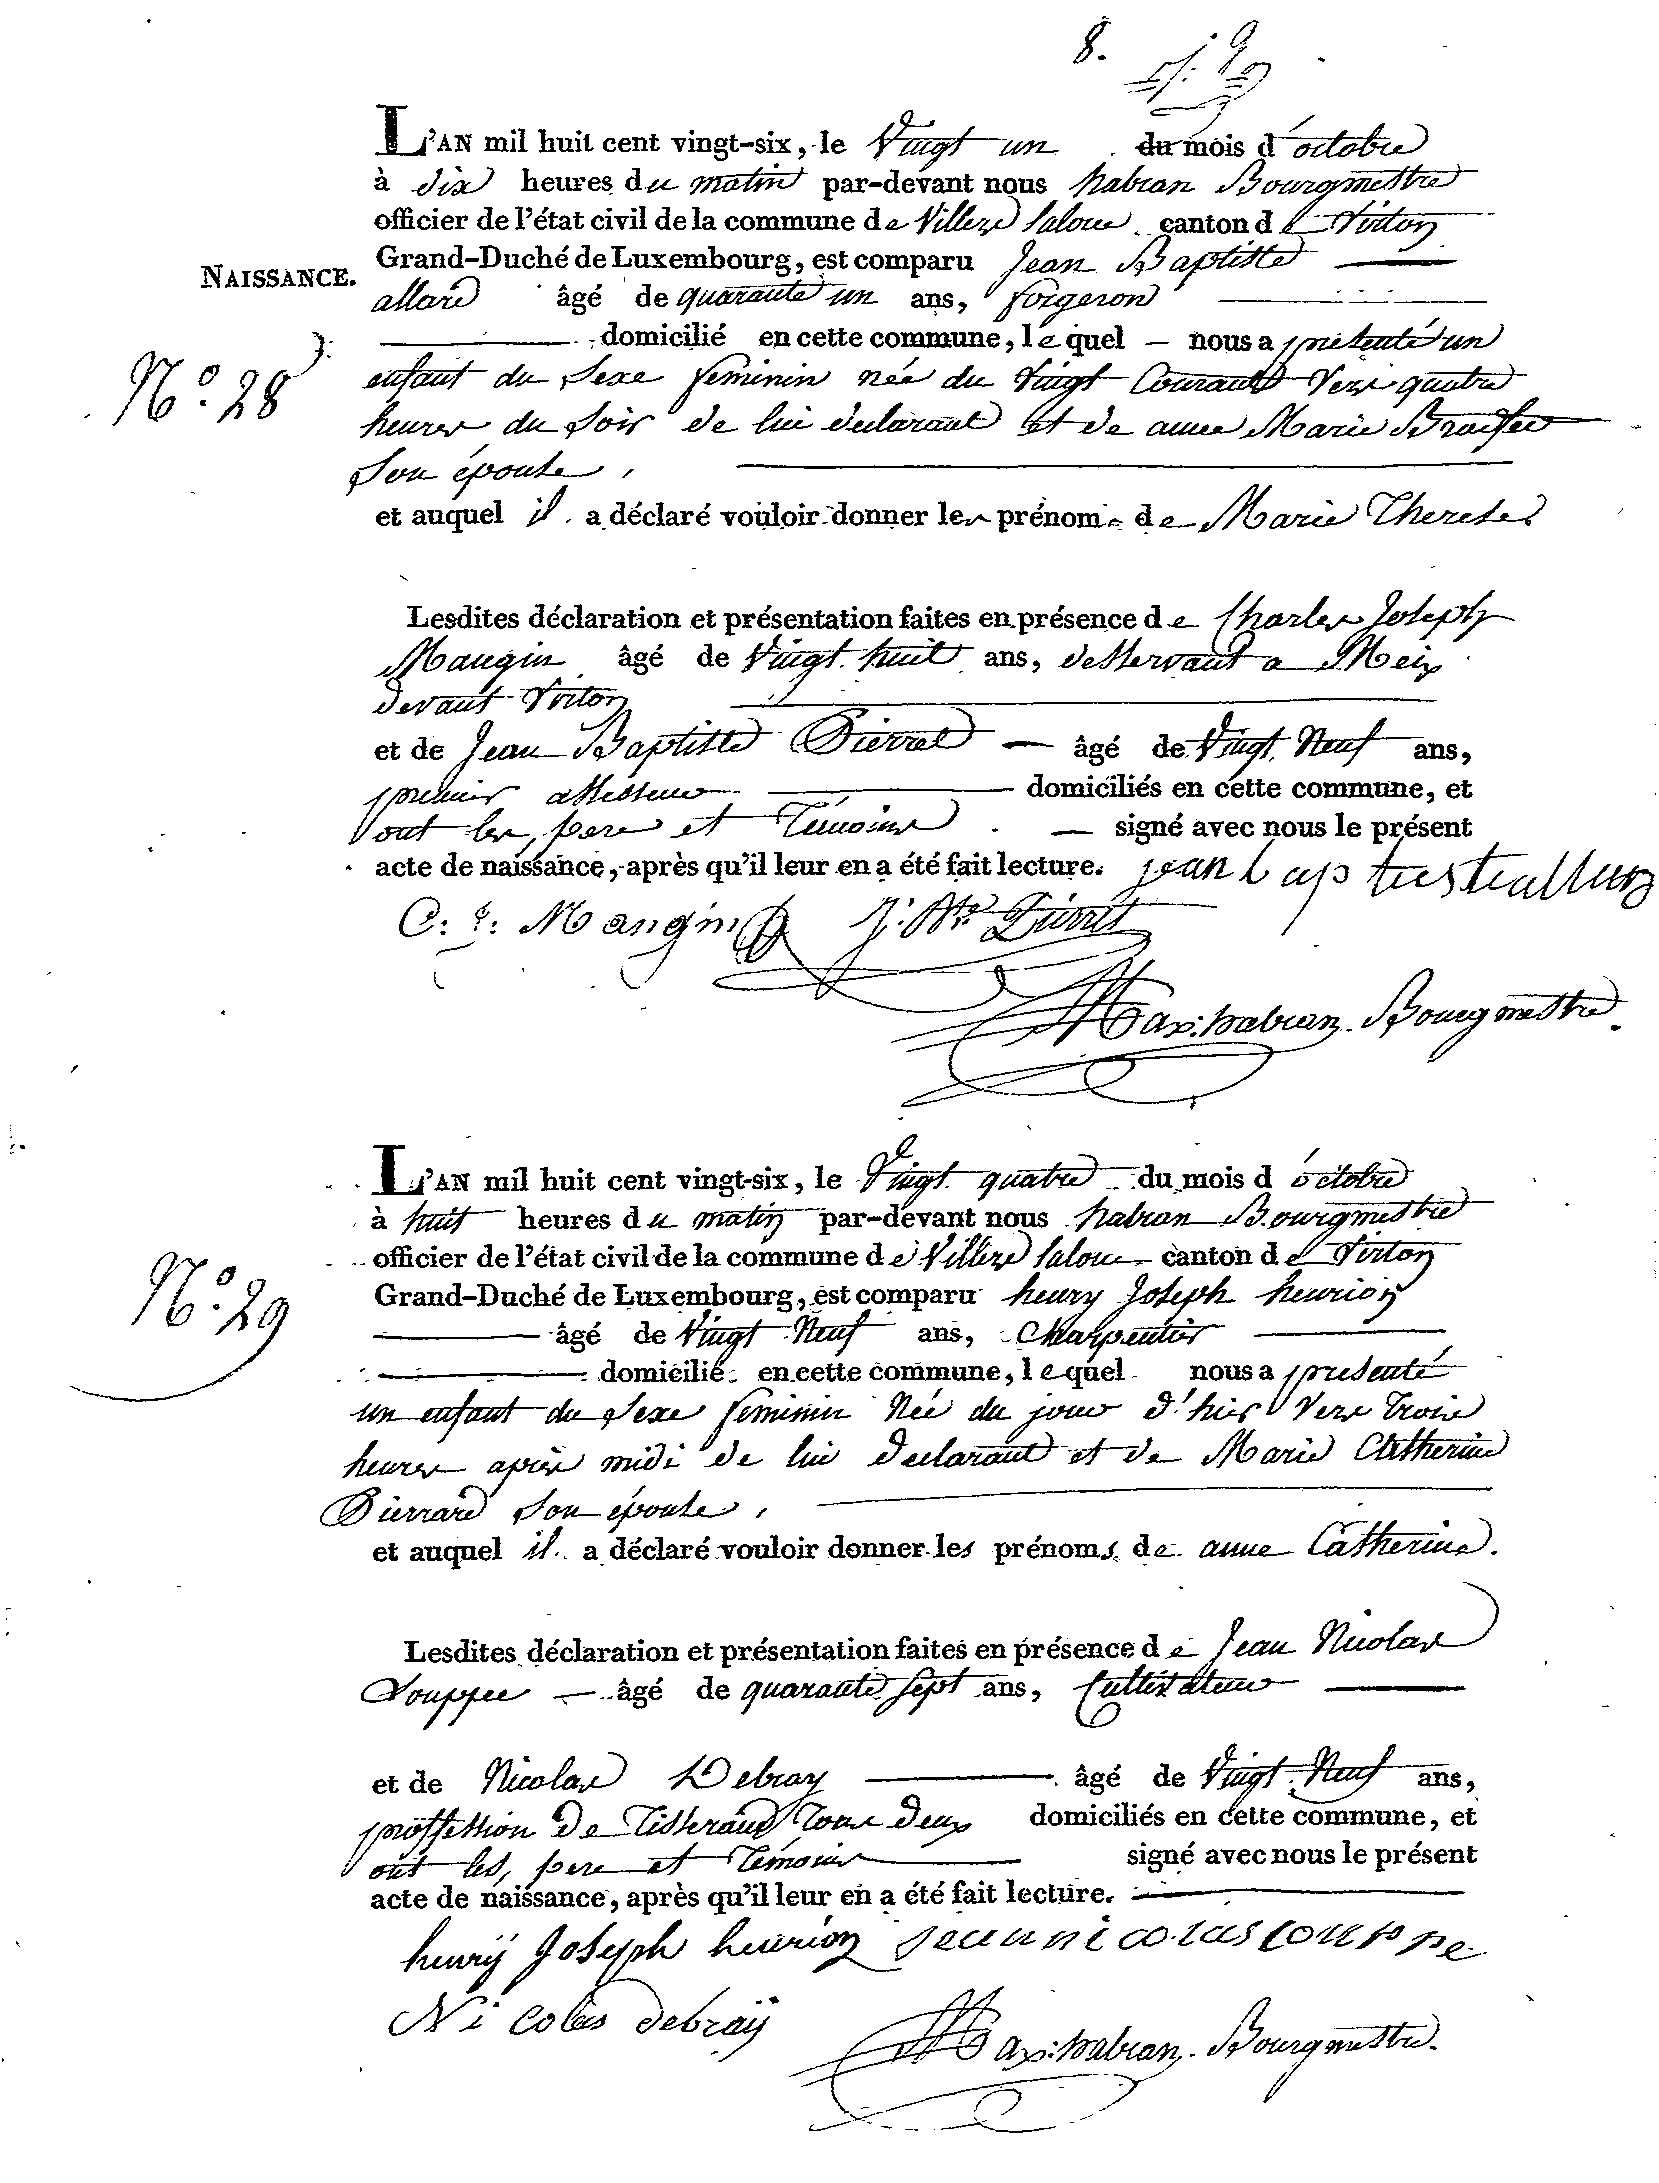 8.
L'AN mil huit cent vingt-six, le Vingt un du mois d'octobre
à dix heures du matin par-devant nous habran Bourgmestre
officier de l'état civil de la commune de Villers laloue canton de Virton
Grand-Duché de Luxembourg, est comparu Jean Baptiste
NAISSANCE.
allard âgé de quarante un ans, forgeron
domicilié en cette commune, lequel nous a présenté un
N.° 28
enfant du sexe feminin née du vingt Courant vers quatre
heures du soir de lui declarant et de anne Marie
son épouse,
et auquel il a déclaré vouloir donner les prénoms de Marie Therese.
Lesdites déclaration et présentation faites en présence de Charles Joseph
Mangin âgé de Vingt huit ans, desservant a Meix
devant Virton
et de Jean Baptiste Pierret âgé de Vingt Neuf ans,
premier assesseur domiciliés en cette commune, et
ont les, pere et Témoins signé avec nous le présent
acte de naissance, après qu'il leur en a été fait lecture. jean baptiste allard
C. J. Mangin J. Bte Pierret
Max: habran. Bourgmestre.
L'AN mil huit cent vingt-six, le Vingt quatre du mois d'octobre
à huit heures du matin par-devant nous habran Bourgmestre
officier de l'état civil de la commune de Villers laloue canton de Virton
Grand-Duché de Luxembourg, est comparu henry Joseph henrion
N.° 29
âgé de Vingt Neuf ans, Charpentier
domicilié en cette commune, lequel nous a presenté
un enfant du sexe feminin Née du jour d'hier vers trois
heures après midi de lui declarant et de Marie Catherine
Pierrard son épouse,
et auquel il a déclaré vouloir donner les prénoms de anne Catherine.
Lesdites déclaration et présentation faites en présence de Jean Nicolas
Couppee âgé de quarante sept ans, Cultivateur
et de Nicolas Debray âgé de Vingt Neuf ans,
proffession de Tisserand Tous deux domiciliés en cette commune, et
ont les, pere et Témoins signé avec nous le présent
acte de naissance, après qu'il leur en a été fait lecture.
henrÿ Joseph henrion jean nicolas couppe
Nicolas debraÿ
Max: habran. Bourgmestre.